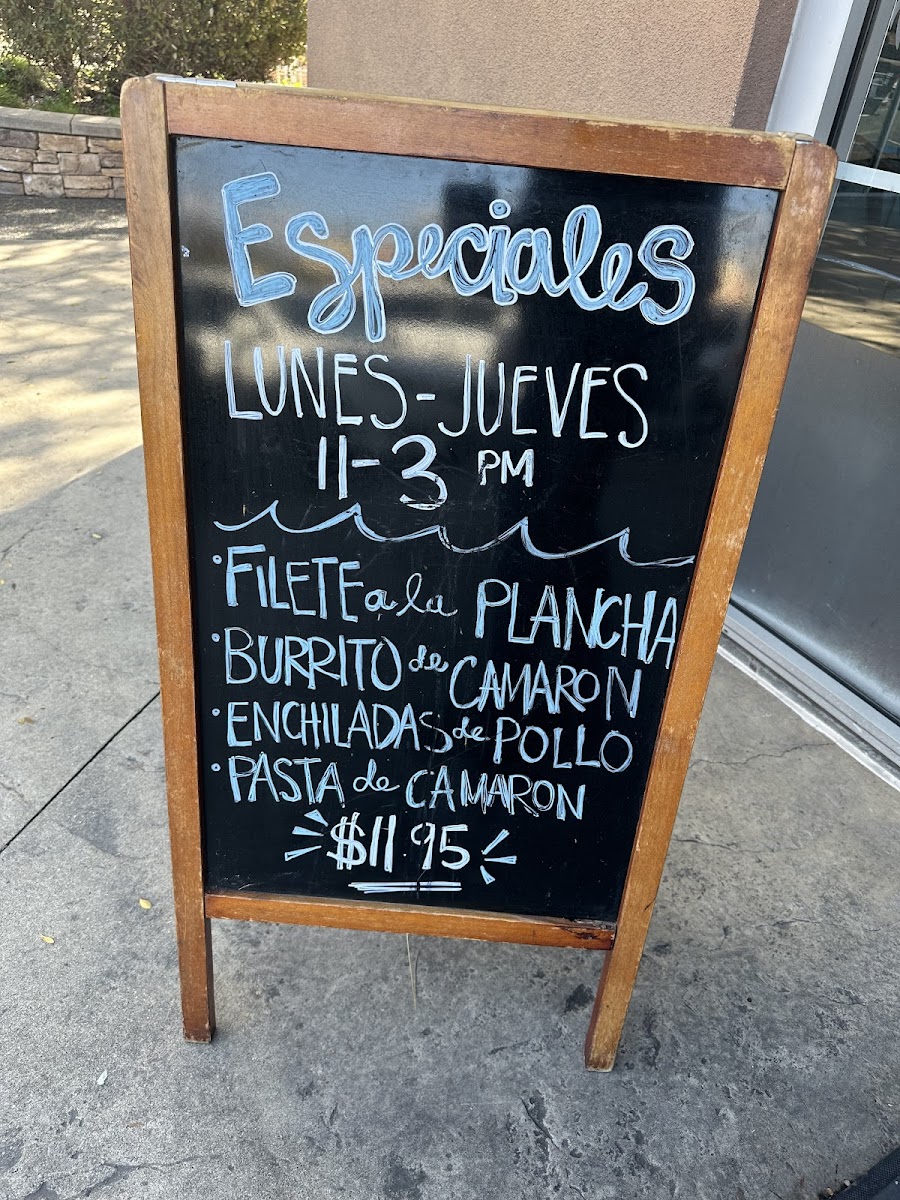 Especiales
LUNES-JUEVES
11-3 PM
• FILETE a la PLANCHA
• BURRITO de CAMARON
• ENCHILADAS de POLLO
• PASTA de CAMARON
$11.95